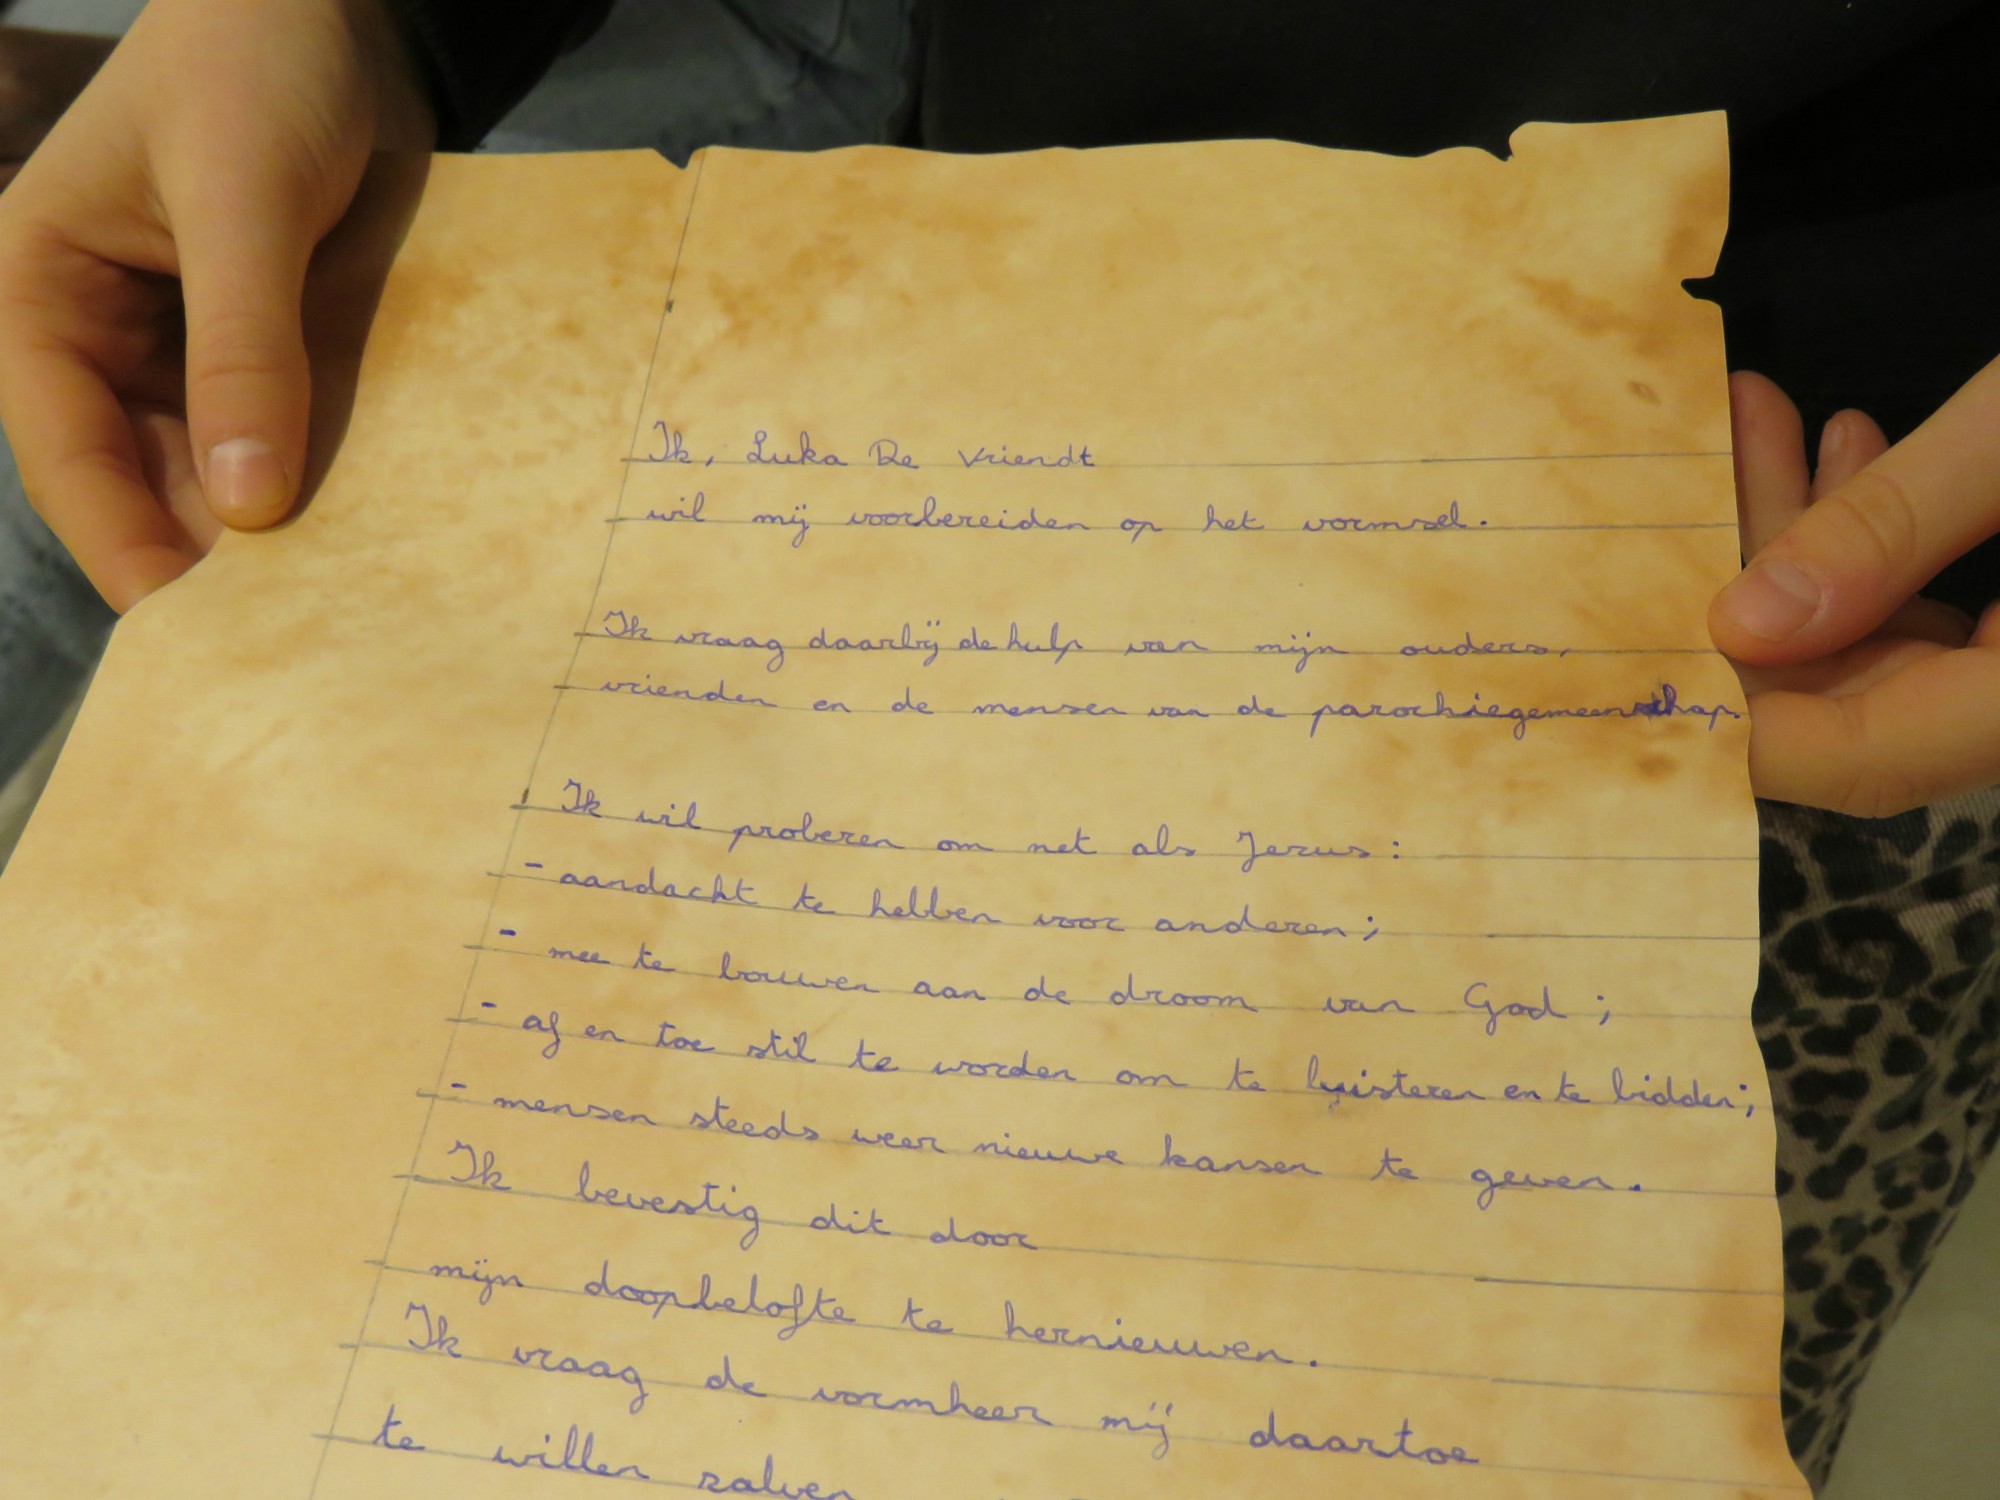 Ik, Luka De Vriendt
wil mij voorbereiden op het vormsel.
Ik vraag daarbij de hulp van mijn ouders,
vrienden en de mensen van de parochiegemeenschap.
Ik wil proberen om net als Jezus:
- aandacht te hebben voor anderen;
- mee te bouwen aan de droom van God;
- af en toe stil te worden om te luisteren en te bidden;
- mensen steeds weer nieuwe kansen te geven.
Ik bevestig dit door
mijn doopbelofte te hernieuwen.
Ik vraag de vormheer mij daartoe
te willen zalven